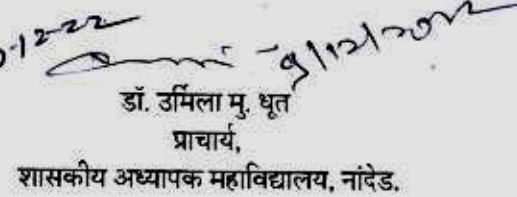 -12-22
9/12/2022
डॉ. उर्मिला मु. धूत
प्राचार्य,
शासकीय अध्यापक महाविद्यालय, नांदेड.